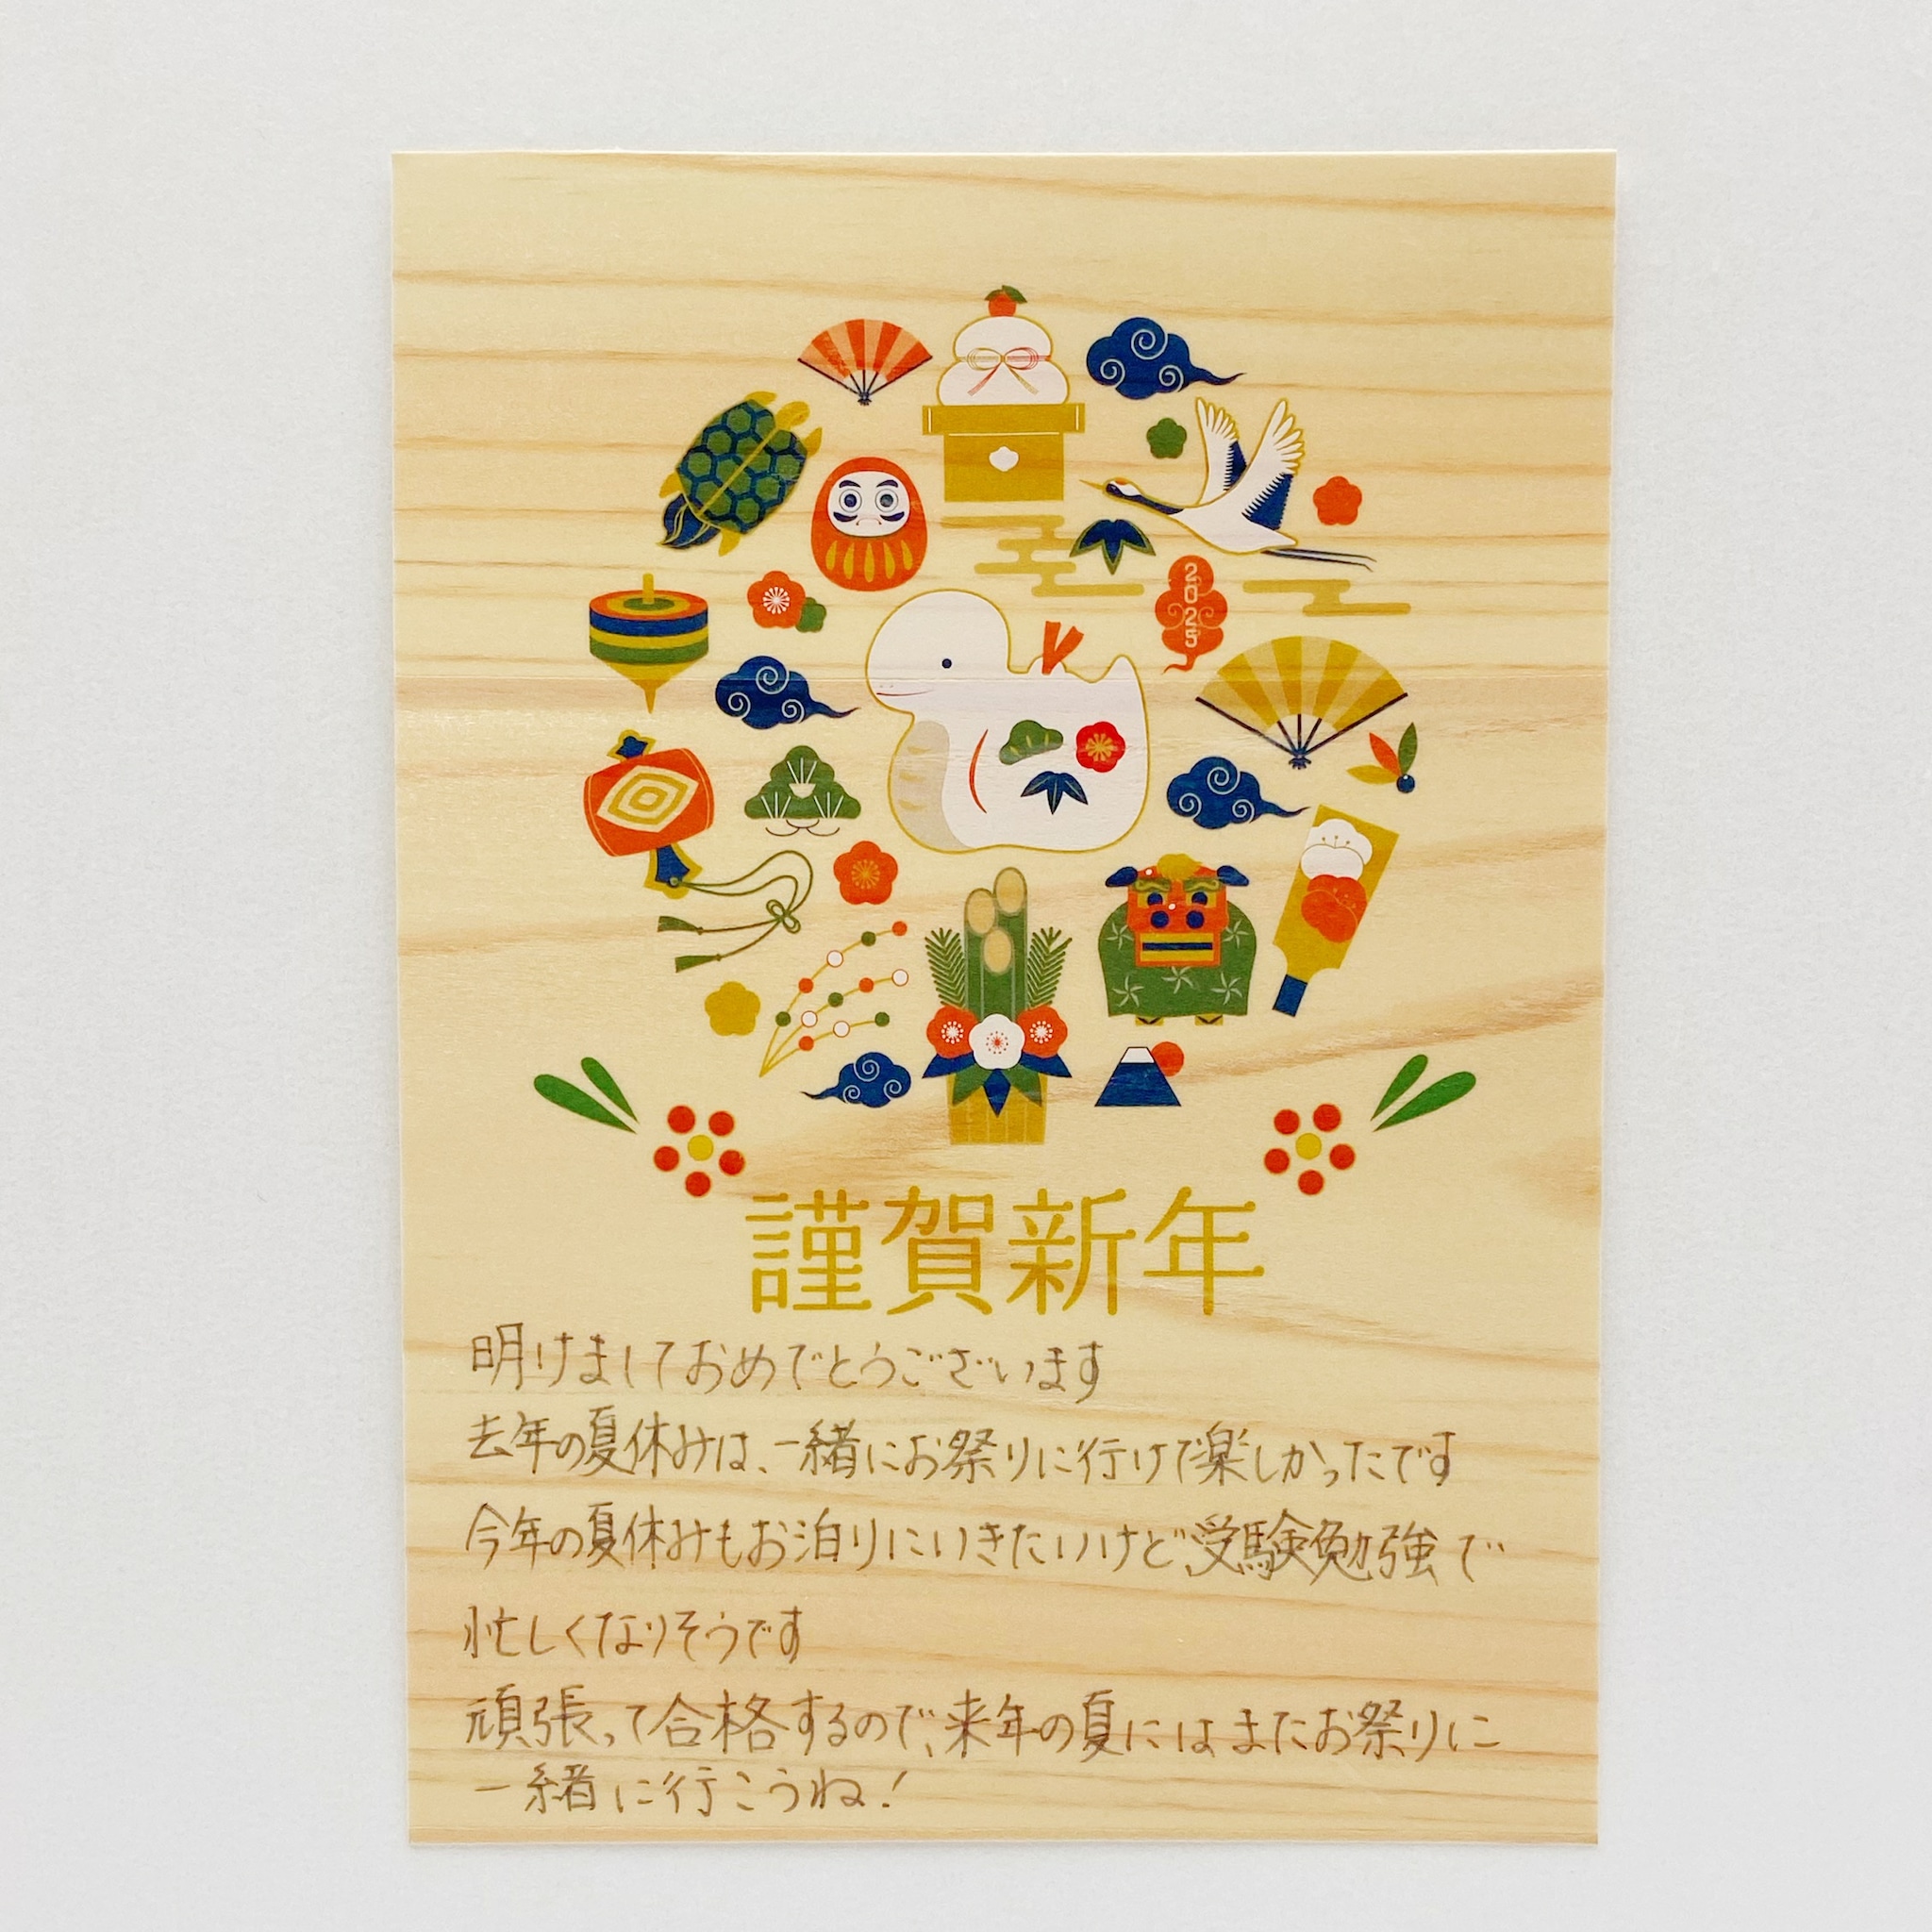 2025
謹賀新年
明けましておめでとうございます
去年の夏休みは、一緒にお祭りに行けて楽しかったです
今年の夏休みもお泊りにいきたいけど、受験勉強で
忙しくなりそうです
頑張って合格するので、来年の夏にはまたお祭りに
一緒に行こうね!